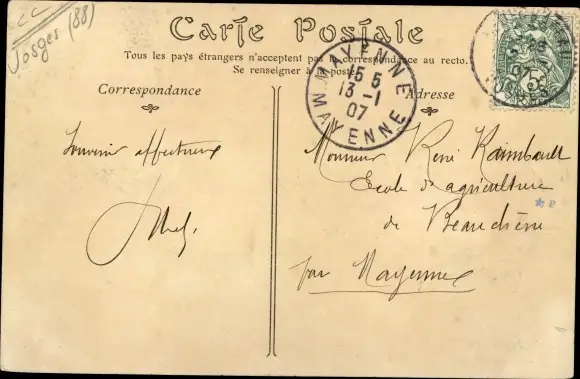 Vosges (88)
Carte Postale
Tous les pays étrangers n'acceptent pas la correspondance au recto.
Se renseigner à la poste.
Correspondance
Adresse
MAYENNE
15 5
13 -1
07
MAYENNE
Souvenir affectueux
Monsieur René Raimbault
Ecole d'agriculture
de Beauchêne
par Mayenne